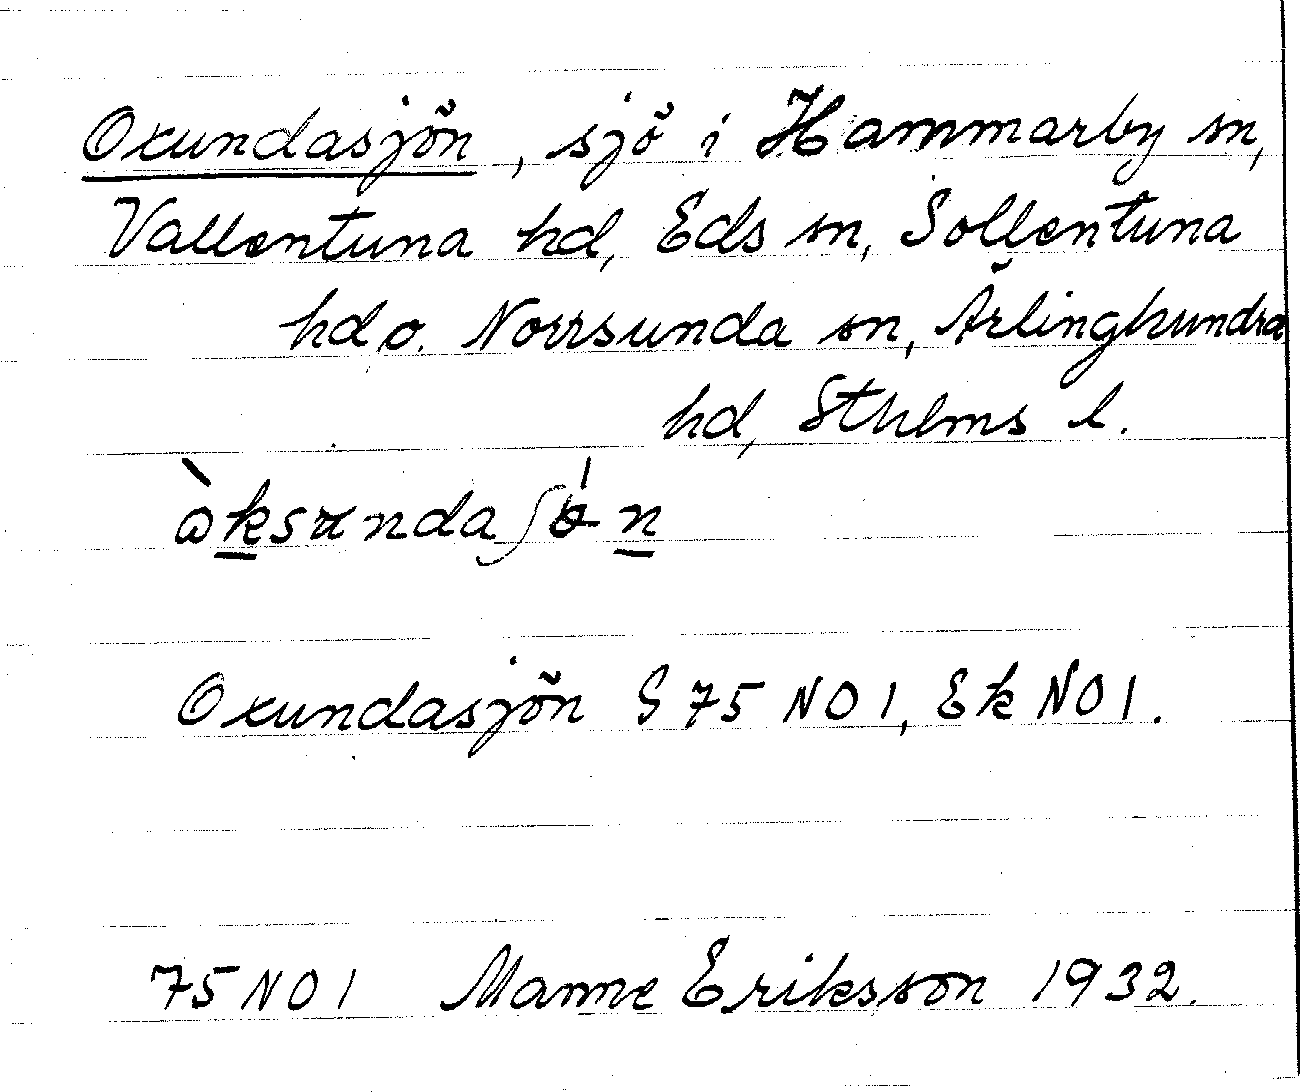 Oxundasjön, sjö i Hammarby sn,
Vallentuna hd, Eds sn, Sollentuna
hd o. Norrsunda sn, Ärlinghundra
hd, Sthlms l.
Oxundasjön S 75 NO 1, Ek NO 1.
75 NO 1 Manne Eriksson 1932.